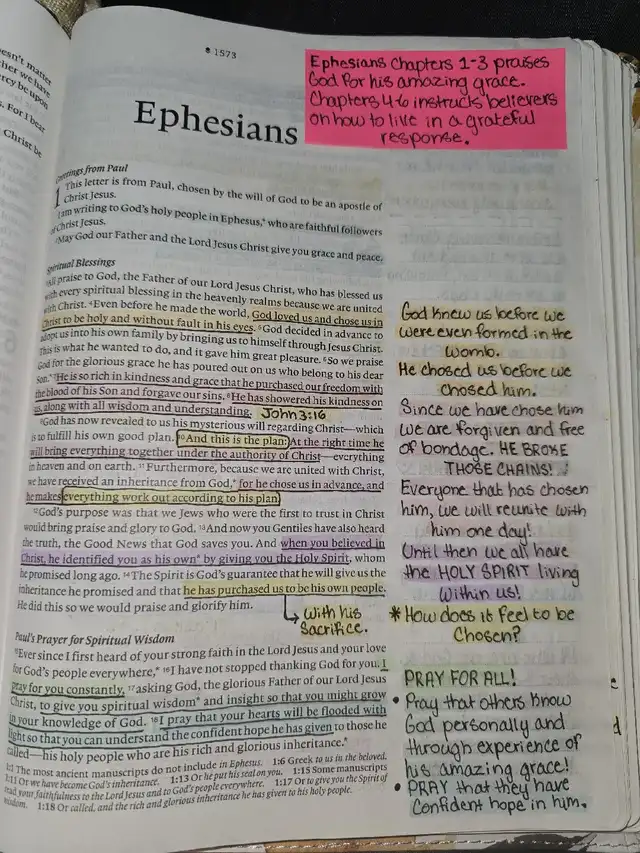 esn't matter
ther we have
rcy be upon
s. For I bear
Christ be
1573
Ephesians Chapters 1-3 praises
God for his amazing grace.
Chapters 4-6 instructs believers
on how to live in a grateful
response.
Ephesians
Greetings from Paul
1 This letter is from Paul, chosen by the will of God to be an apostle of
Christ Jesus.
I am writing to God's holy people in Ephesus,* who are faithful followers
of Christ Jesus.
2May God our Father and the Lord Jesus Christ give you grace and peace.
Spiritual Blessings
3All praise to God, the Father of our Lord Jesus Christ, who has blessed us
with every spiritual blessing in the heavenly realms because we are united
with Christ. 4Even before he made the world, God loved us and chose us in
Christ to be holy and without fault in his eyes. 5God decided in advance to
adopt us into his own family by bringing us to himself through Jesus Christ.
This is what he wanted to do, and it gave him great pleasure. 6So we praise
God for the glorious grace he has poured out on us who belong to his dear
Son.* 7He is so rich in kindness and grace that he purchased our freedom with
the blood of his Son and forgave our sins. 8He has showered his kindness on
us, along with all wisdom and understanding. John 3:16
9God has now revealed to us his mysterious will regarding Christ—which
is to fulfill his own good plan. 10And this is the plan: At the right time he
will bring everything together under the authority of Christ—everything
in heaven and on earth. 11Furthermore, because we are united with Christ,
we have received an inheritance from God,* for he chose us in advance, and
he makes everything work out according to his plan.
12God's purpose was that we Jews who were the first to trust in Christ
would bring praise and glory to God. 13And now you Gentiles have also heard
the truth, the Good News that God saves you. And when you believed in
Christ, he identified you as his own* by giving you the Holy Spirit, whom
he promised long ago. 14The Spirit is God's guarantee that he will give us the
inheritance he promised and that he has purchased us to be his own people.
He did this so we would praise and glorify him.
With his
Sacrifice.
Paul's Prayer for Spiritual Wisdom
15Ever since I first heard of your strong faith in the Lord Jesus and your love
for God's people everywhere,* 16I have not stopped thanking God for you. I
pray for you constantly, 17asking God, the glorious Father of our Lord Jesus
Christ, to give you spiritual wisdom* and insight so that you might grow
in your knowledge of God. 18I pray that your hearts will be flooded with
light so that you can understand the confident hope he has given to those he
called—his holy people who are his rich and glorious inheritance.*
1:1 The most ancient manuscripts do not include in Ephesus. 1:6 Greek to us in the beloved.
1:11 Or we have become God's inheritance. 1:13 Or he put his seal on you. 1:15 Some manuscripts
read your faithfulness to the Lord Jesus and to God's people everywhere. 1:17 Or to give you the Spirit of
wisdom. 1:18 Or called, and the rich and glorious inheritance he has given to his holy people.
God knew us before we
were even formed in the
womb.
He chose us before we
chosed him.
Since we have chose him
we are forgiven and free
of bondage. HE BROKE
THOSE CHAINS!
Everyone that has chosen
him, we will reunite with
him one day!
Until then we all have
the HOLY SPIRIT living
within us!
* How does it feel to be
Chosen?
PRAY FOR ALL!
• Pray that others know
God personally and
through experience of
his amazing grace!
• PRAY that they have
Confident hope in him.